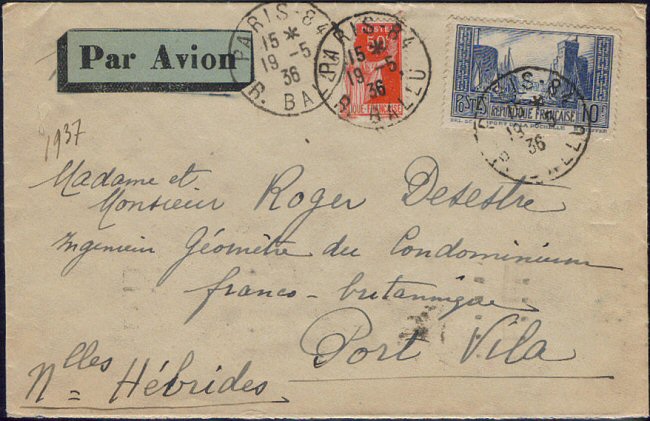 Par Avion
PARIS-84
15 *
19-5
36
R. BALLU
POSTES
50c
PARIS-84
15 *
19-5
36
R. BALLU
PARIS-84
19-5
36
10F
REPUBLIQUE FRANÇAISE
LA ROCHELLE
1937
Madame et
Monsieur Roger Desestre
Ingenieur Géomètre du Condominium
franco-britannique
Port Vila
Nlles Hébrides